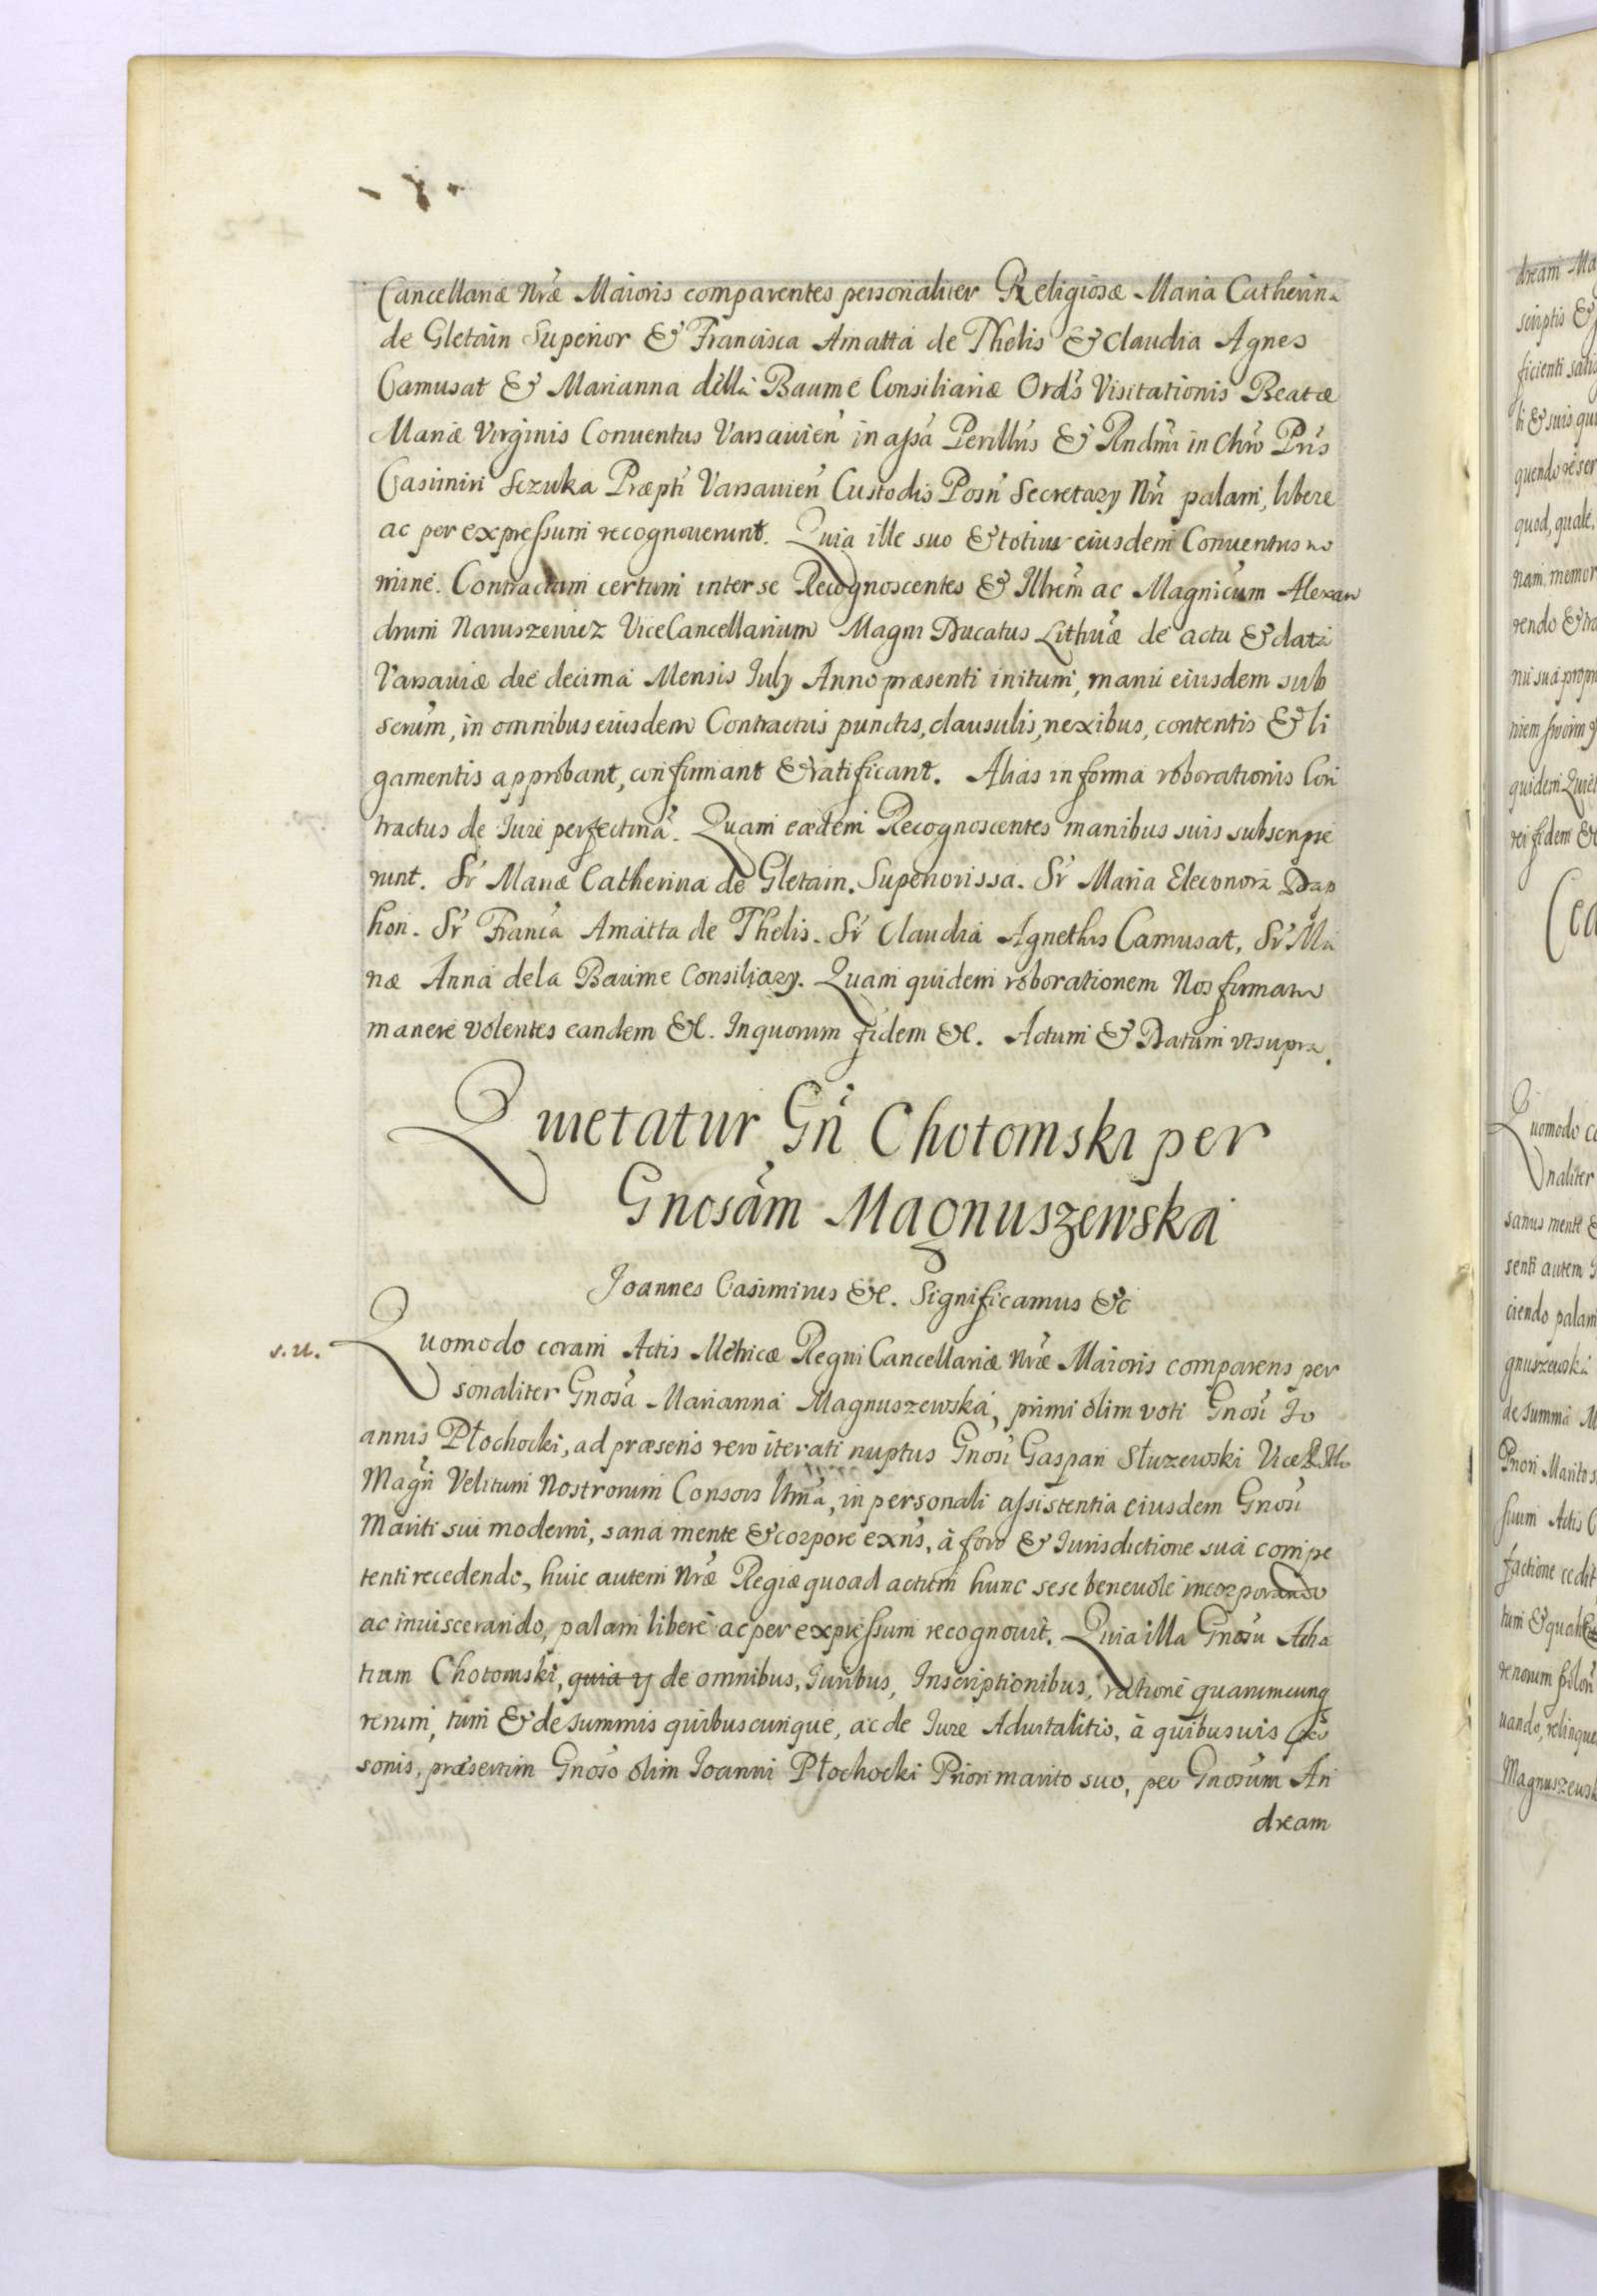 Cancellariæ Nræ Maioris comparentes personaliter Religiosæ Maria Catherina
de Gletain Superior & Francisca Amatta de Thelis & Claudia Agnes
Camusat & Marianna della Baume Consiliariæ Ordīs Visitationis Beatæ
Mariæ Virginis Conuentus Varsauien in assa Perillus & Rndmi in Chro Pris
Casimiri Sczuka Præpti Varsauien Custodis Posn Secretary Nri palam, libere
ac per expressum recognouerunt. Quia ille suo & totius eiusdem Conuentus no
mine. Contractum certum inter se Recognoscentes & Illrem ac Magnicum Alexan
drum Naruszewicz ViceCancellarium Magni Ducatus Lithuæ de actu & data
Varsauiæ die decima Mensis July Anno præsenti initum, manu eiusdem sub
scrium, in omnibus eiusdem Contractus punctis, clausulis, nexibus, contentis & li
gamentis approbant, confirmant & ratificant. Alias in forma roborationis Con
tractus de Iure perfectma. Quam eædem Recognoscentes manibus suis subscripse
runt. Sr Mariæ Catherina de Gletain. Superiorissa. Sr Maria Eleconora Dap
hon. Sr Franca Amatta de Thelis. Sr Claudia Agnethis Camusat, Sr Ma
riæ Anna dela Baume Consiliary. Quam quidem roborationem Nos firmam
manere volentes eandem &c. In quorum fidem &c. Actum & Datum vt supra.
Quietatur Gn Chotomski per
Gnosam Magnuszewska
Joannes Casimirus &c. Significamus &c
s. u.
Quomodo coram Actis Metricæ Regni Cancellariæ Nræ Maioris comparens per
sonaliter Gnosa Marianna Magnuszewska, primi olim voti Gnosi Jo
annis Płochocki, ad præsens vero iterati nuptus Gnosi Gaspari Słuzewski Vice
Magri Velitum Nostrorum Consors ltma, in personali assistentia eiusdem Gnosi
Mariti sui moderni, sana mente & corpore exns, à foro & Iurisdictione sua compe
tenti recedendo, huic autem Nræ Regiæ quoad actum hunc sese beneuole incorporando
ac inuiscerando, palam libere ac per expressum recognouit. Quia illa Gnosu Acha
tium Chotomski, quia y de omnibus, Iuribus, Inscriptionibus, ratione quarumcunq
rerum, tum & de summis quibuscunque, ac de Iure Aduitalitis, à quibusuis per
sonis, præsertim Gnoso olim Joanni Płochocki Priori marito suo, per Gnosum An
dream